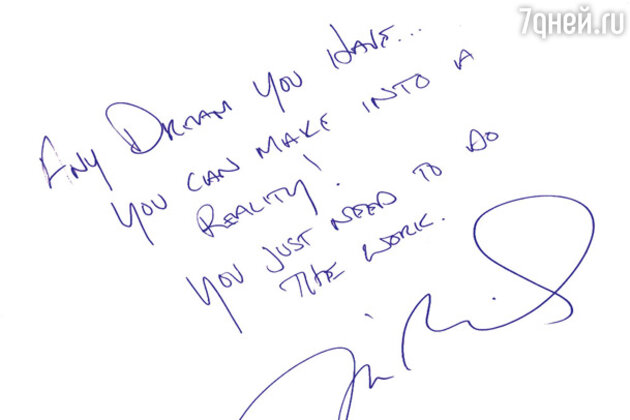 7дней.ru
Any Dream You Have...
You can make into a
Reality!
You just need to do
the work.